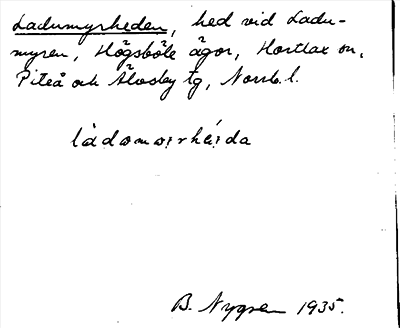 Ladumyrheden, hed vid Ladu-
myren, Högsböle ägor, Hortlax sn,
Piteå och Älvsby tg, Norrb. l.
B. Nygren 1935.